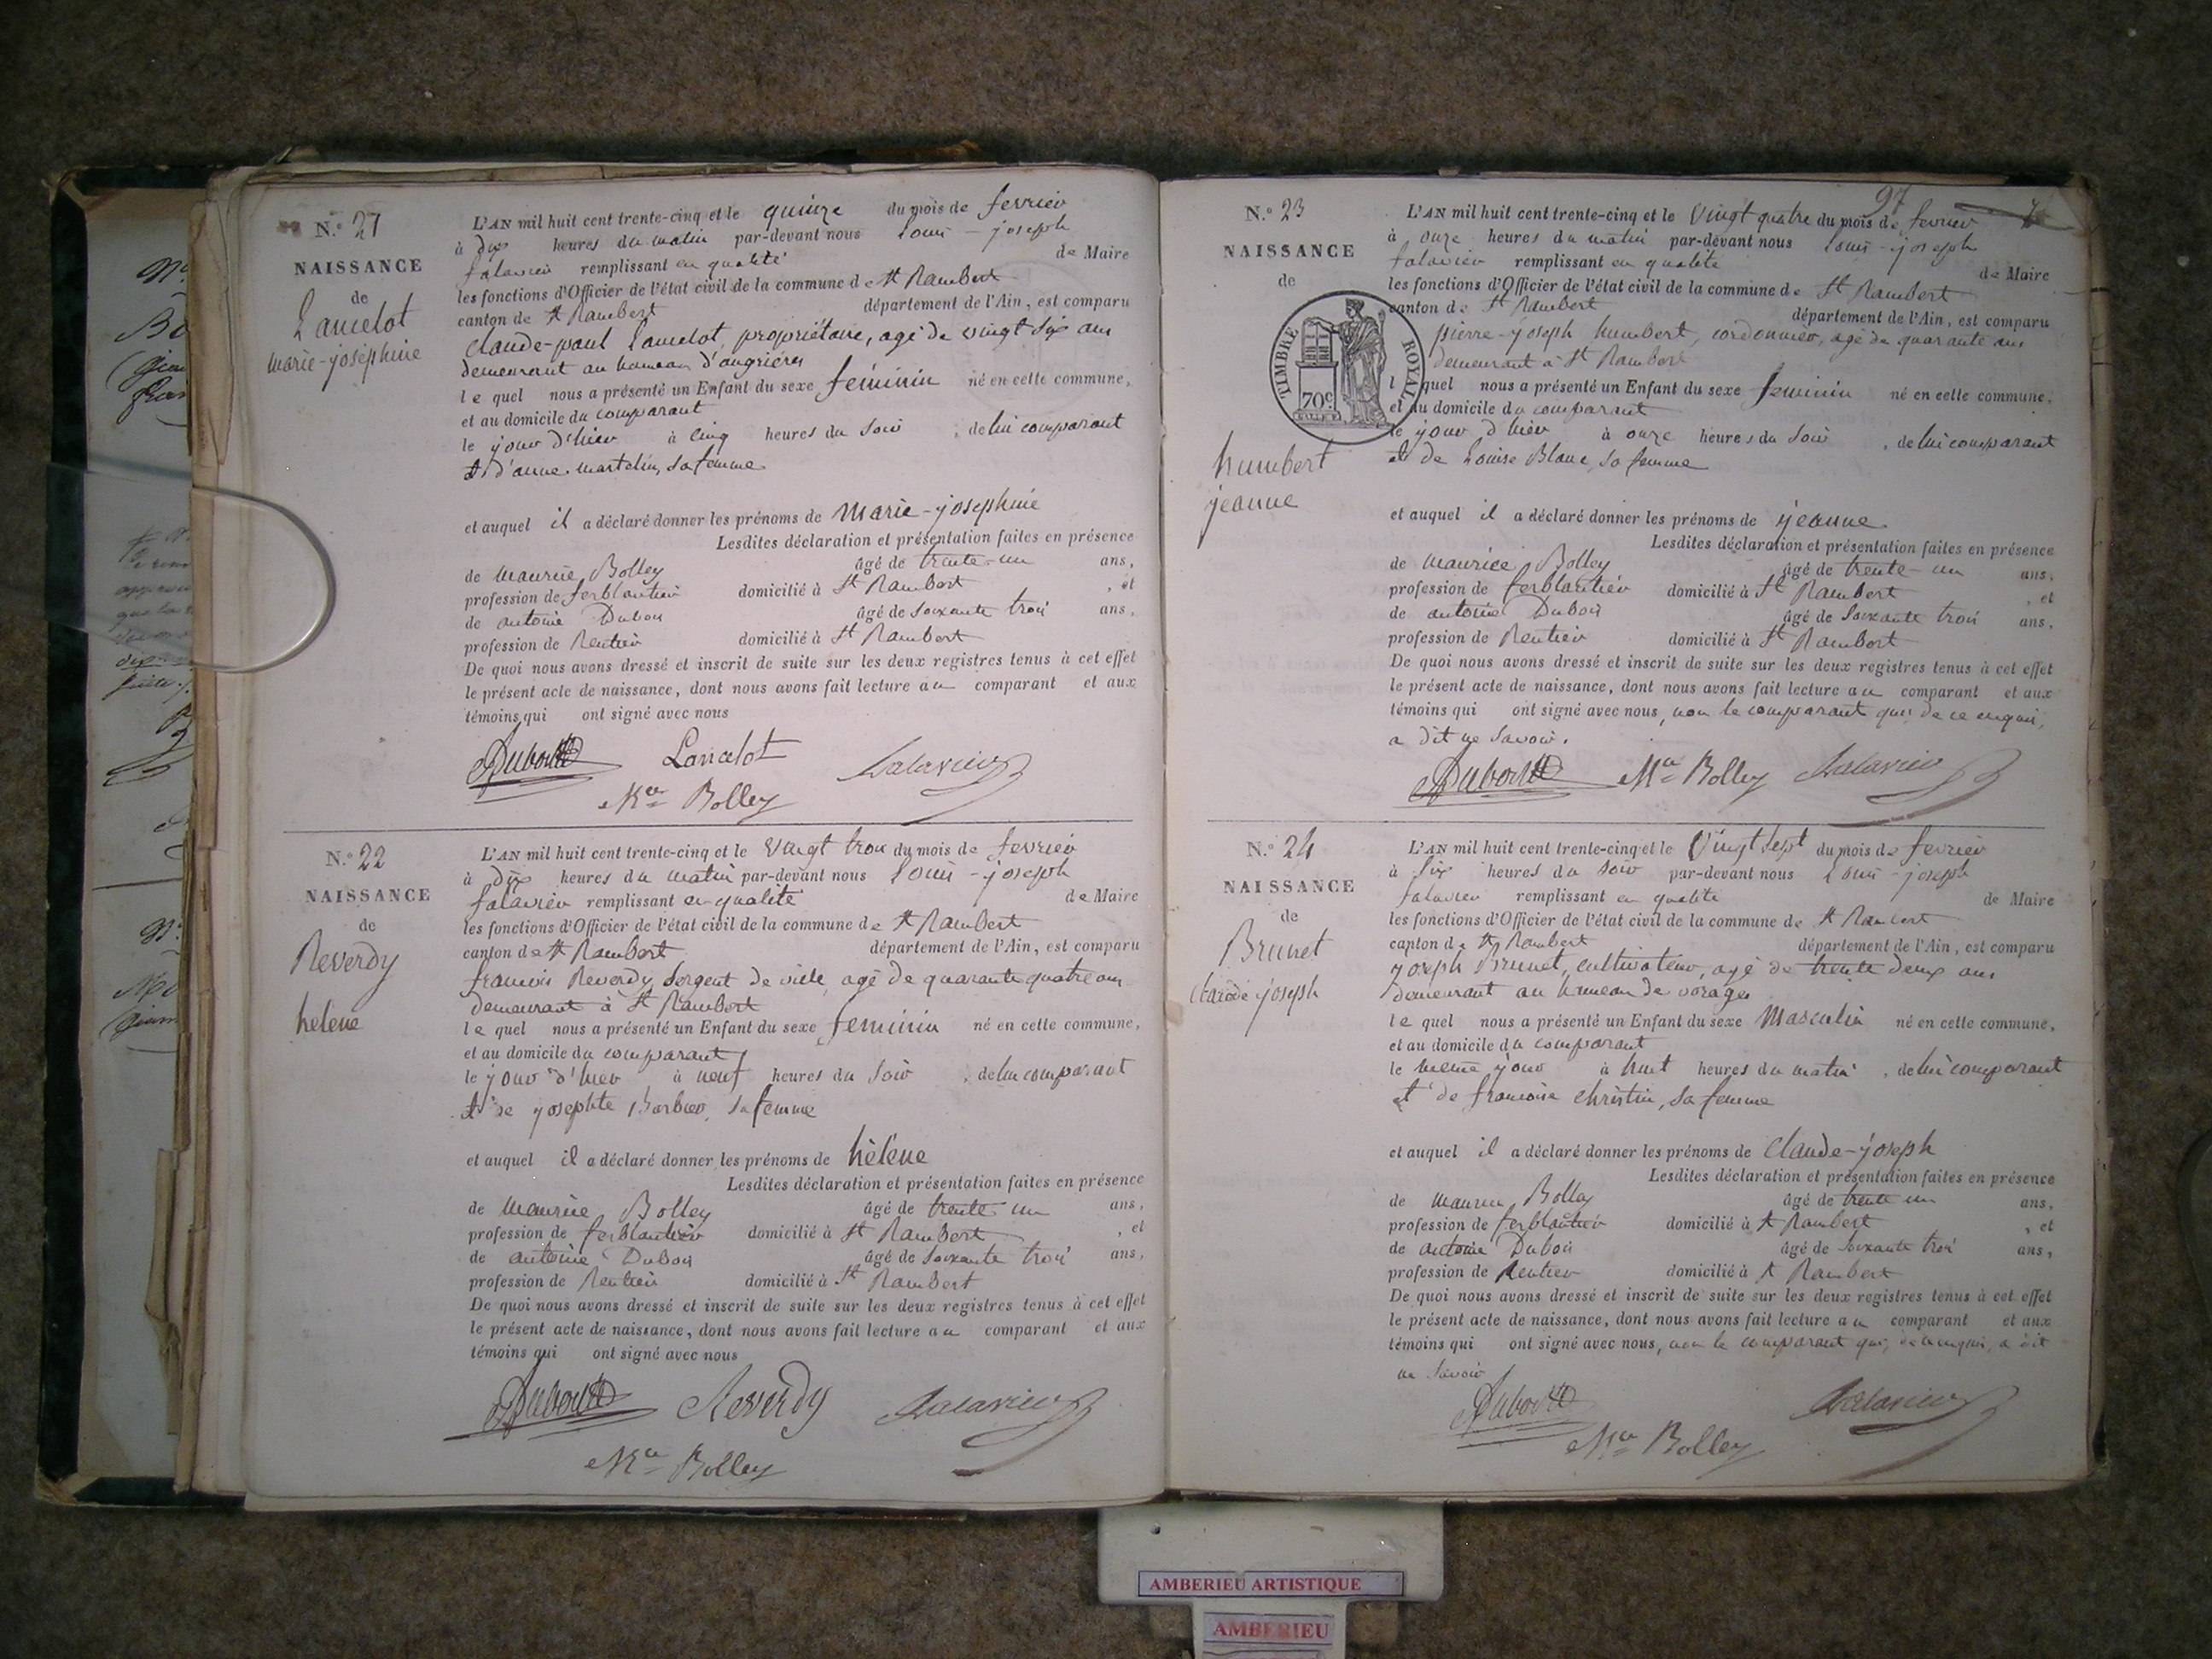 N.° 21
NAISSANCE
de
Lancelot
marie-joséphine
L'AN mil huit cent trente-cinq et le quinze du mois de fevrier
à dix heures du matin par-devant nous Louis-joseph
falavier remplissant en qualité de Maire
les fonctions d'Officier de l'état civil de la commune de St Rambert
canton de St Rambert département de l'Ain, est comparu
Claude-paul Lancelot, propriétaire, agé de vingt six ans
demeurant au hameau d'angriéres
lequel nous a présenté un Enfant du sexe féminin né en cette commune,
et au domicile du comparant
le jour d'hier à cinq heures du soir, de lui comparant
et d'anne martelin, sa femme
et auquel il a déclaré donner les prénoms de Marie-josephine
Lesdites déclaration et présentation faites en présence
de maurice Bolley âgé de trente-un ans,
profession de ferblantier domicilié à St Rambert, et
de antoine Dubois âgé de soixante trois ans,
profession de Rentier domicilié à St Rambert
De quoi nous avons dressé et inscrit de suite sur les deux registres tenus à cet effet
le présent acte de naissance, dont nous avons fait lecture au comparant et aux
témoins qui ont signé avec nous
Dubois Lancelot Falavier
Mce Bolley
N.° 22
NAISSANCE
de
Reverdy
helène
L'AN mil huit cent trente-cinq et le vingt trois du mois de fevrier
à dix heures du matin par-devant nous Louis-joseph
falavier remplissant en qualité de Maire
les fonctions d'Officier de l'état civil de la commune de St Rambert
canton de St Rambert département de l'Ain, est comparu
francois Reverdy, sergent de ville, agé de quarante quatre ans
demeurant à St Rambert
lequel nous a présenté un Enfant du sexe feminin né en cette commune,
et au domicile du comparant
le jour d'hier à neuf heures du soir, de lui comparant
et de josephte Barbier, sa femme
et auquel il a déclaré donner les prénoms de hélène
Lesdites déclaration et présentation faites en présence
de maurice Bolley âgé de trente un ans,
profession de ferblantier domicilié à St Rambert, et
de antoine Dubois âgé de soixante trois ans,
profession de Rentier domicilié à St Rambert
De quoi nous avons dressé et inscrit de suite sur les deux registres tenus à cet effet
le présent acte de naissance, dont nous avons fait lecture au comparant et aux
témoins qui ont signé avec nous
Dubois Reverdy Falavier
Mce Bolley
97
N.° 23
NAISSANCE
de
TIMBRE ROYAL
70c
humbert
jeanne
L'AN mil huit cent trente-cinq et le vingt quatre du mois de fevrier
à onze heures du matin par-devant nous Louis-joseph
falavier remplissant en qualité de Maire
les fonctions d'Officier de l'état civil de la commune de St Rambert
canton de St Rambert département de l'Ain, est comparu
pierre-joseph humbert, cordonnier, agé de quarante ans
demeurant à St Rambert
lequel nous a présenté un Enfant du sexe feminin né en cette commune,
et au domicile du comparant
le jour d'hier à onze heures du soir, de lui comparant
et de Louise Blanc, sa femme
et auquel il a déclaré donner les prénoms de jeanne
Lesdites déclaration et présentation faites en présence
de maurice Bolley âgé de trente-un ans,
profession de ferblantier domicilié à St Rambert, et
de antoine Dubois âgé de soixante trois ans,
profession de Rentier domicilié à St Rambert
De quoi nous avons dressé et inscrit de suite sur les deux registres tenus à cet effet
le présent acte de naissance, dont nous avons fait lecture au comparant et aux
témoins qui ont signé avec nous, non le comparant qui, de ce enquis,
a dit ne savoir.
Dubois Mce Bolley Falavier
N.° 24
NAISSANCE
de
Brunet
claude joseph
L'AN mil huit cent trente-cinq et le vingt sept du mois de fevrier
à six heures du soir par-devant nous Louis-joseph
falavier remplissant en qualité de Maire
les fonctions d'Officier de l'état civil de la commune de St Rambert
canton de St Rambert département de l'Ain, est comparu
joseph Brunet, cultivateur, agé de trente deux ans
demeurant au hameau de vorages
lequel nous a présenté un Enfant du sexe Masculin né en cette commune,
et au domicile du comparant
le même jour à huit heures du matin, de lui comparant
et de francoise christin, sa femme
et auquel il a déclaré donner les prénoms de Claude-joseph
Lesdites déclaration et présentation faites en présence
de maurice Bolley âgé de trente un ans,
profession de ferblantier domicilié à St Rambert, et
de antoine Dubois âgé de soixante trois ans,
profession de Rentier domicilié à St Rambert
De quoi nous avons dressé et inscrit de suite sur les deux registres tenus à cet effet
le présent acte de naissance, dont nous avons fait lecture au comparant et aux
témoins qui ont signé avec nous, non le comparant qui, de ce enquis, a dit
ne savoir
Dubois Falavier
Mce Bolley
AMBERIEU ARTISTIQUE
AMBERIEU